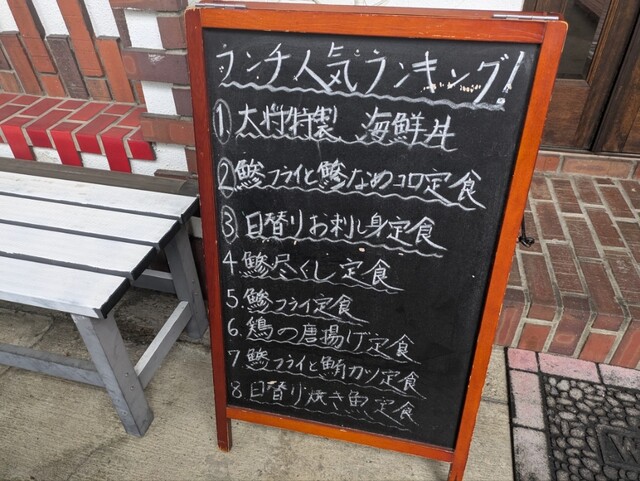 ランチ人気ランキング!
① 大将特製 海鮮丼
② 鯵フライと鯵なめコロ定食
③ 日替りお刺し身定食
4 鯵尽くし定食
5. 鯵フライ定食
6. 鶏の唐揚げ定食
7 鯵フライと鮪カツ定食
8 日替り焼き魚定食